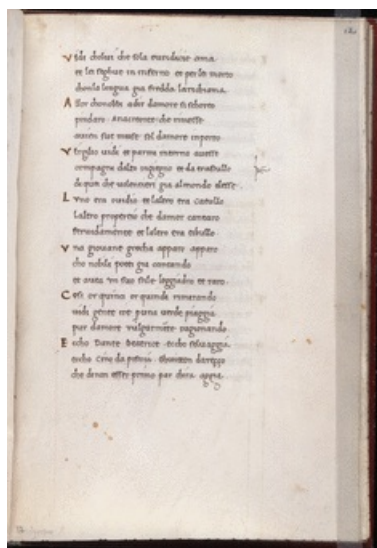 Vidi cholui che sola euridice ama
et lei seghue in inferno et per lei morto
chonla lengua gia fredda la richiama
Alceo chonobbi a dir damore si schorto
pindaro Anacreonte che rimesse
sue muse sol damore inporto
Virgilio vidi et parmi intorno avesse
compagni dalto ingegno et da trastullo
di que che volentieri gia almondo elesse
Luno era ovidio et laltro era Catullo
laltro propertio che damor cantaro
fervidamente et laltro era tibullo
Una giovane grecha apparo apparo
cho nobili poeti gia cantando
et avea un suo stile leggiadro et raro
Cosi or quinci or quindi rimirando
vidi gente ire puna verde piaggia
pur damore vulgarmente ragionando
Eccho Dante Beatrice eccho selvaggia
eccho Cino da pistoia Ghuitton darezzo
che di non esser primo par